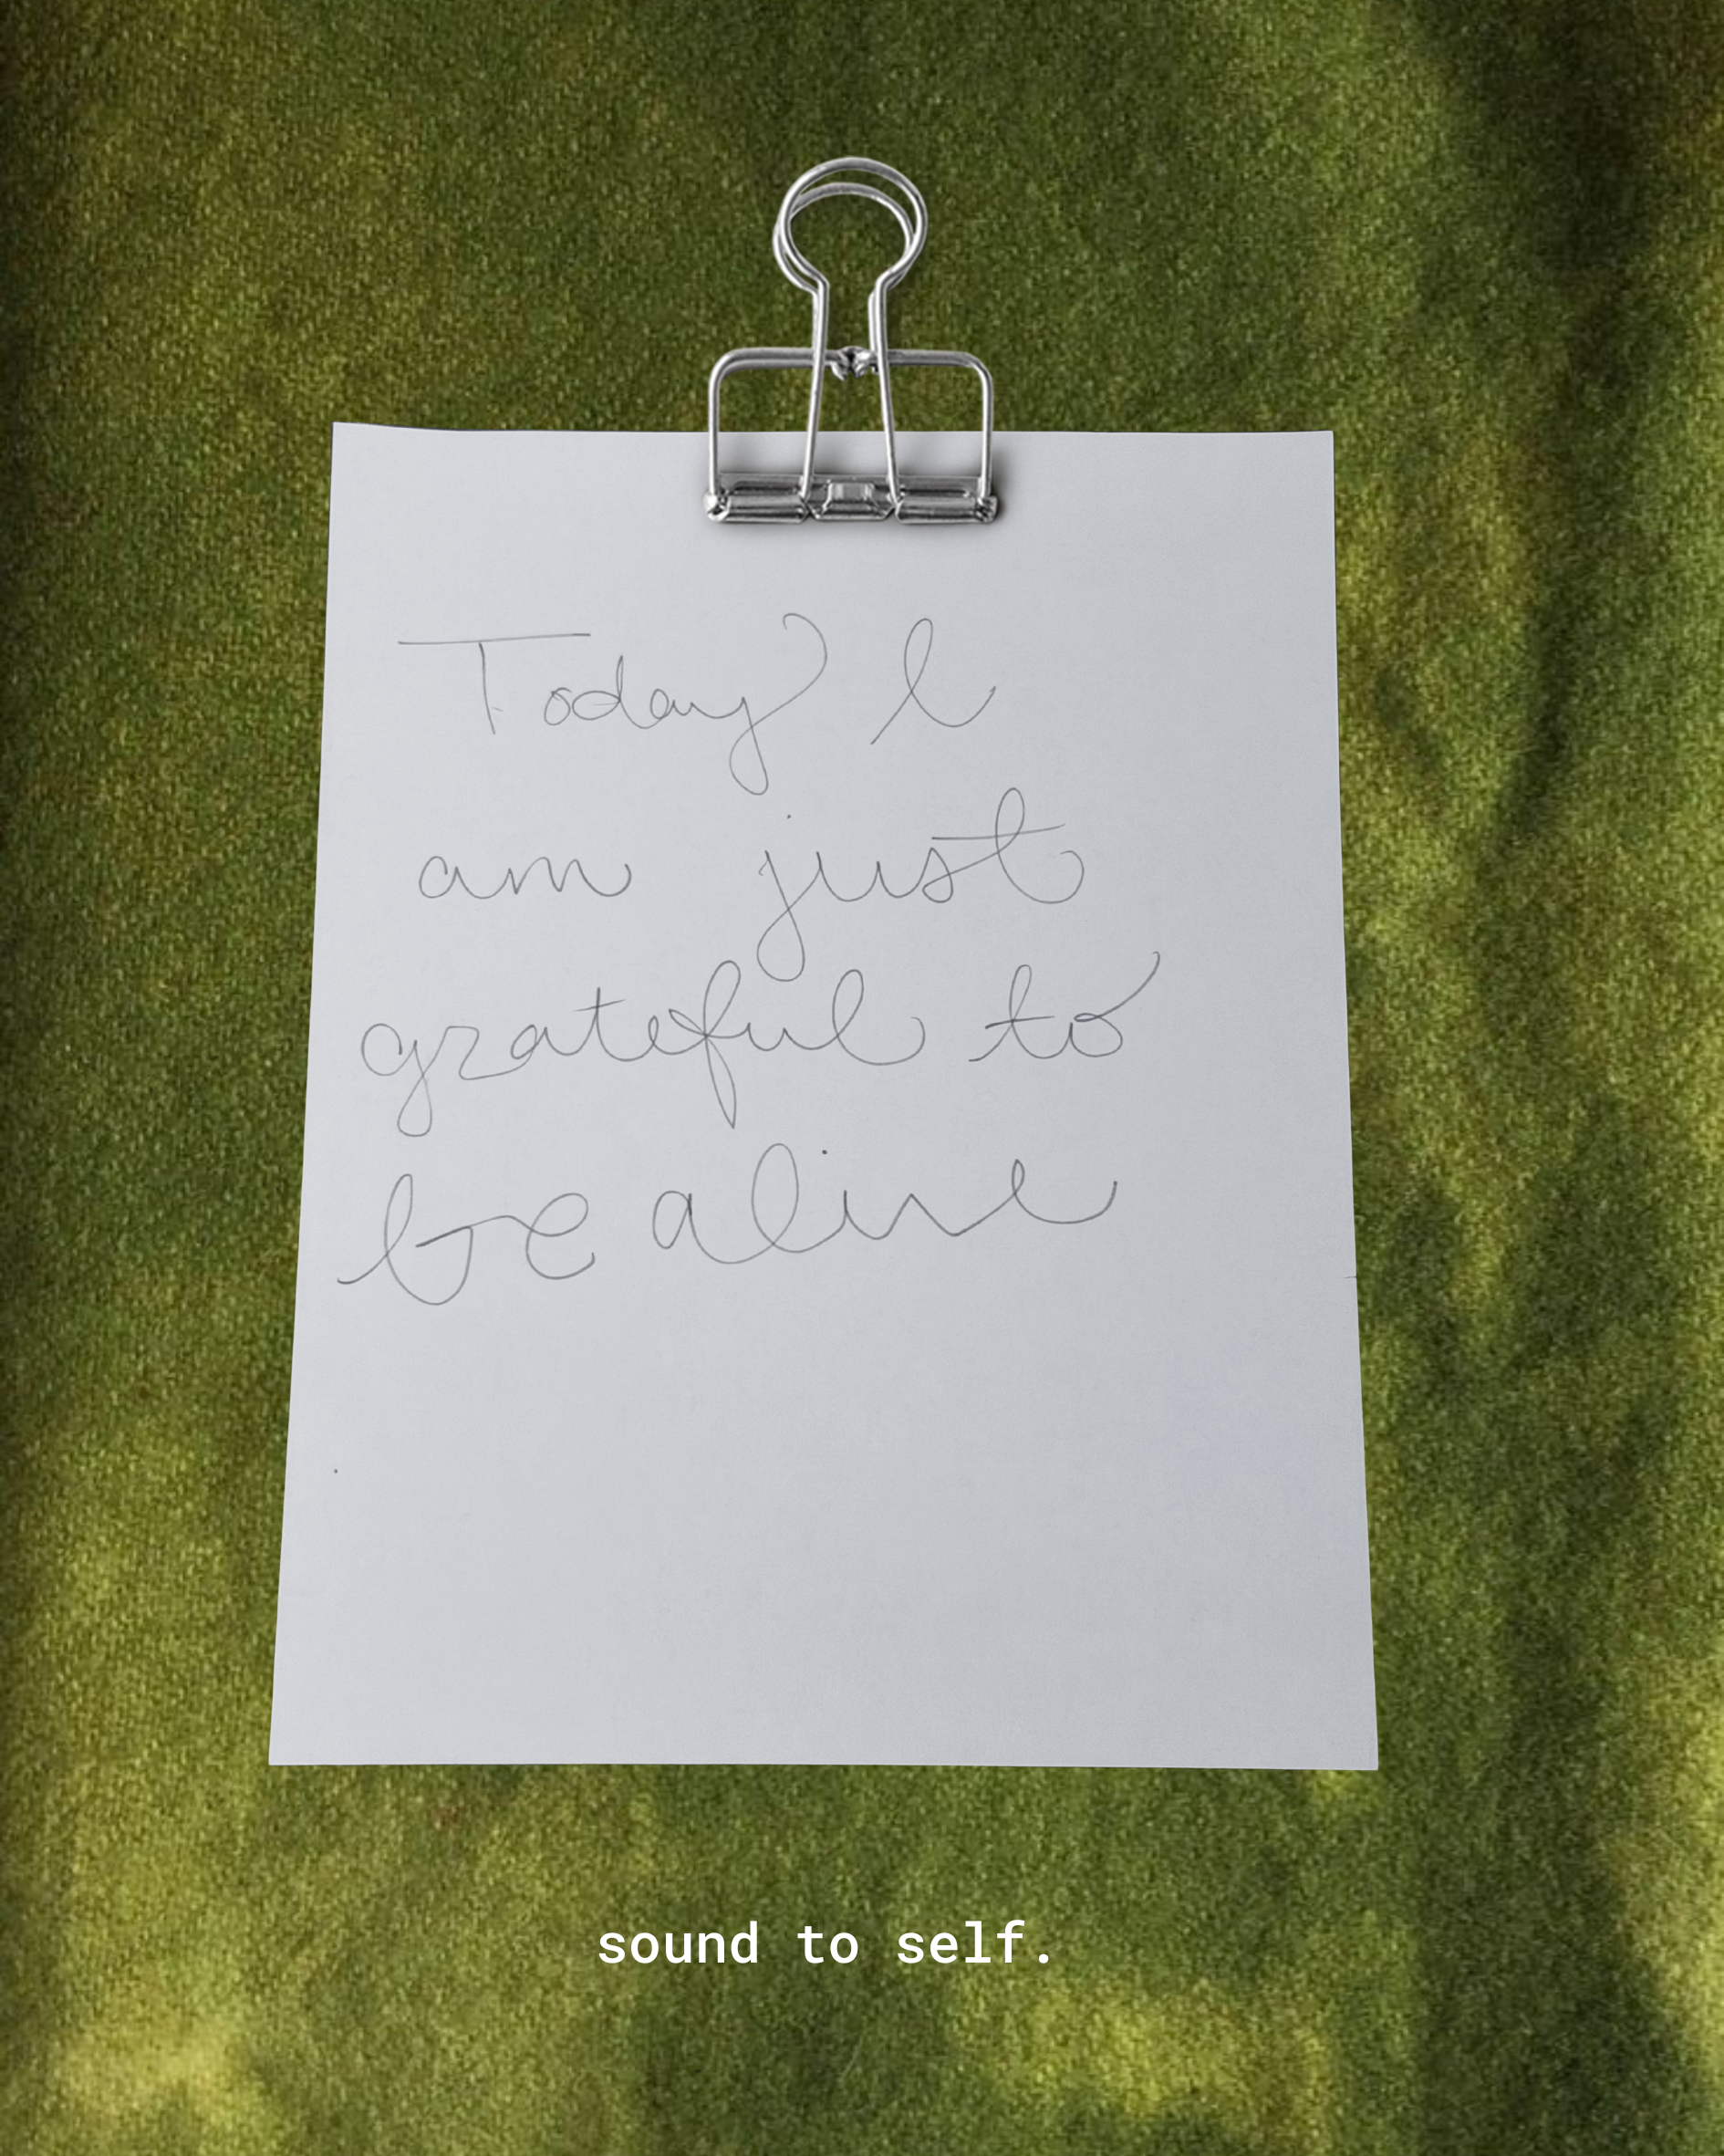 Today I
am just
grateful to
be alive
sound to self.